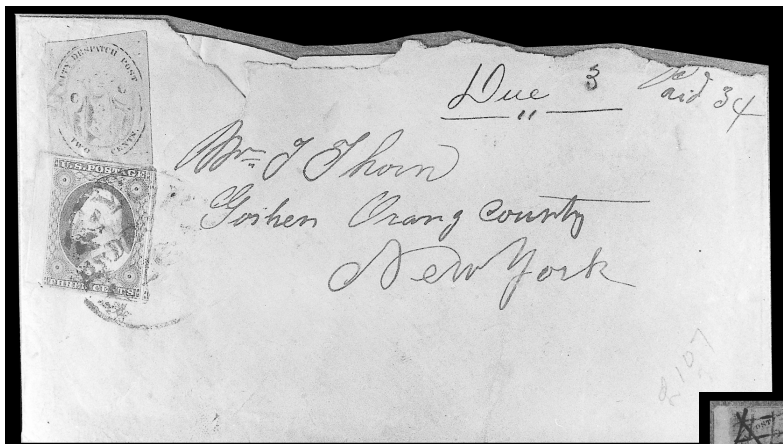 CITY DESPATCH POST
TWO CENTS.
U.S. POSTAGE
THREE CENTS
Due 3
Paid 34
Wm T Thorn
Goshen Orang County
New York
107